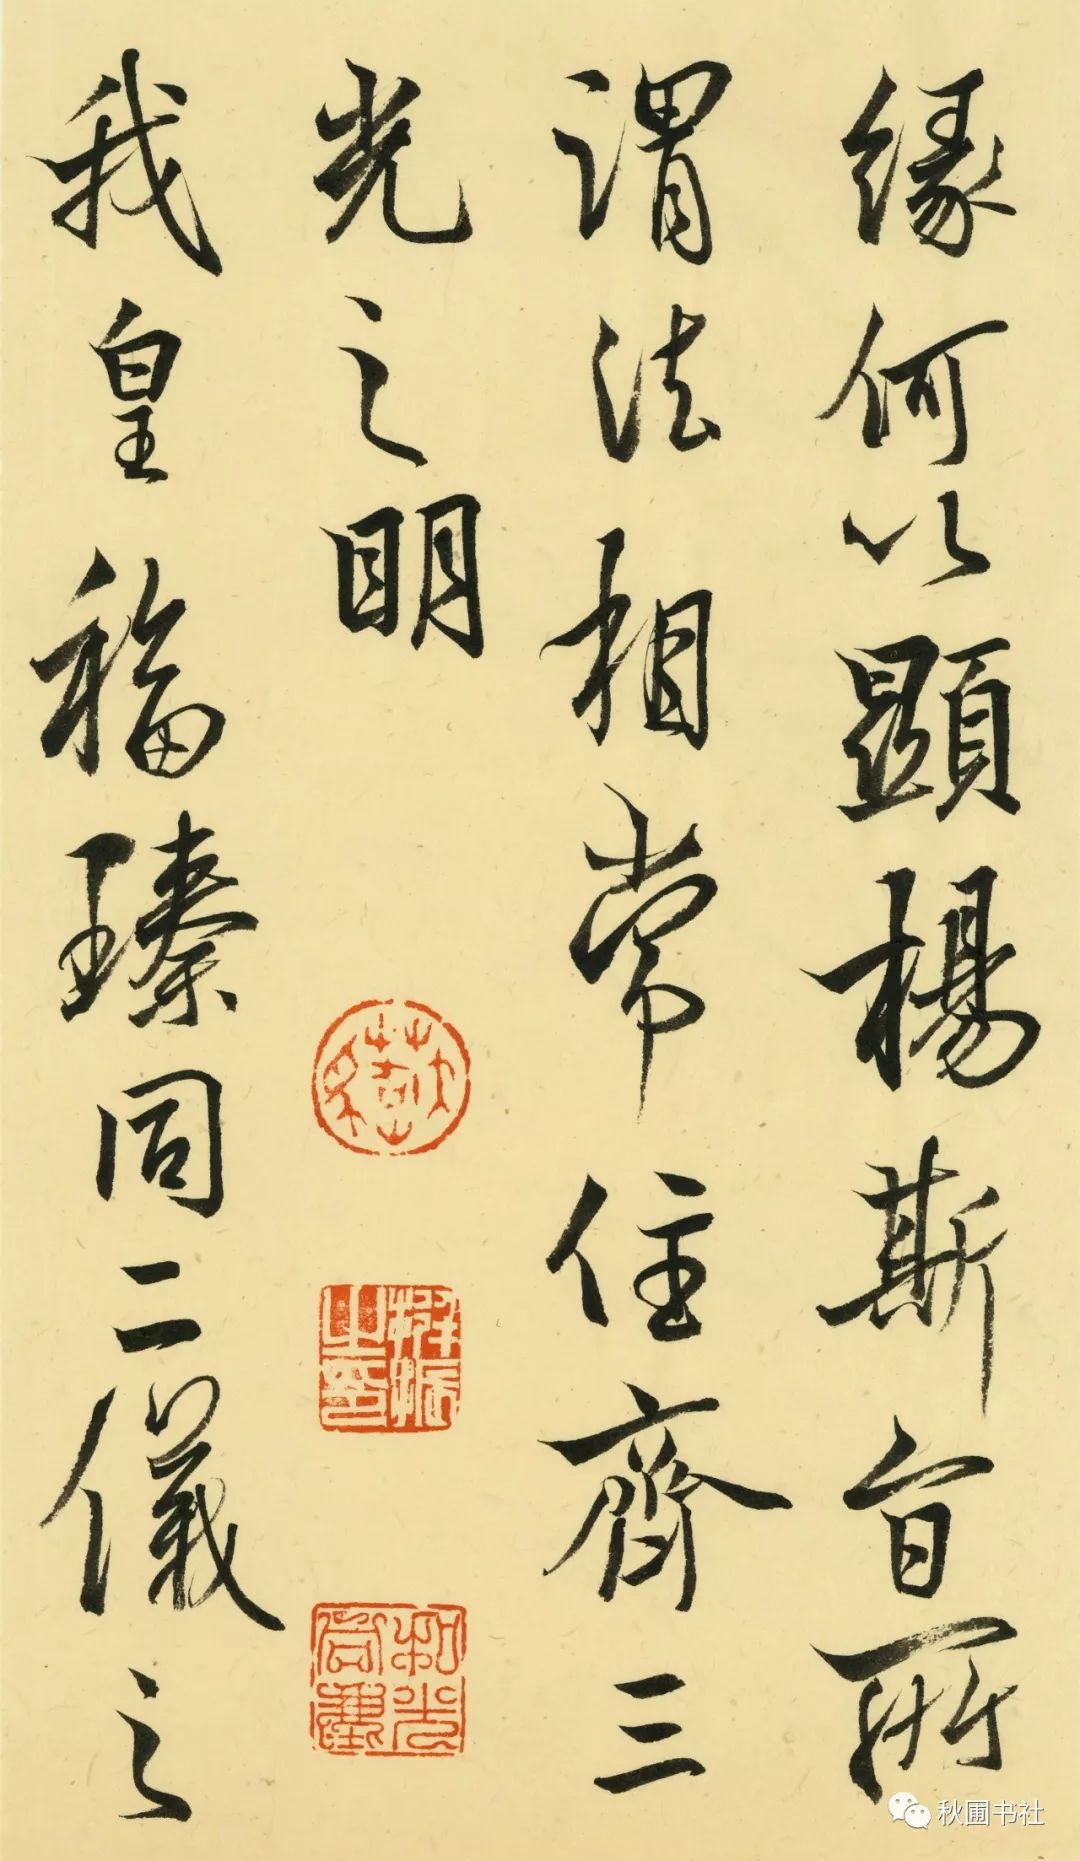 緣何以顯楊斯旨所
謂法相常住齊三
光之明
我皇福臻同二儀之
秋圃书社